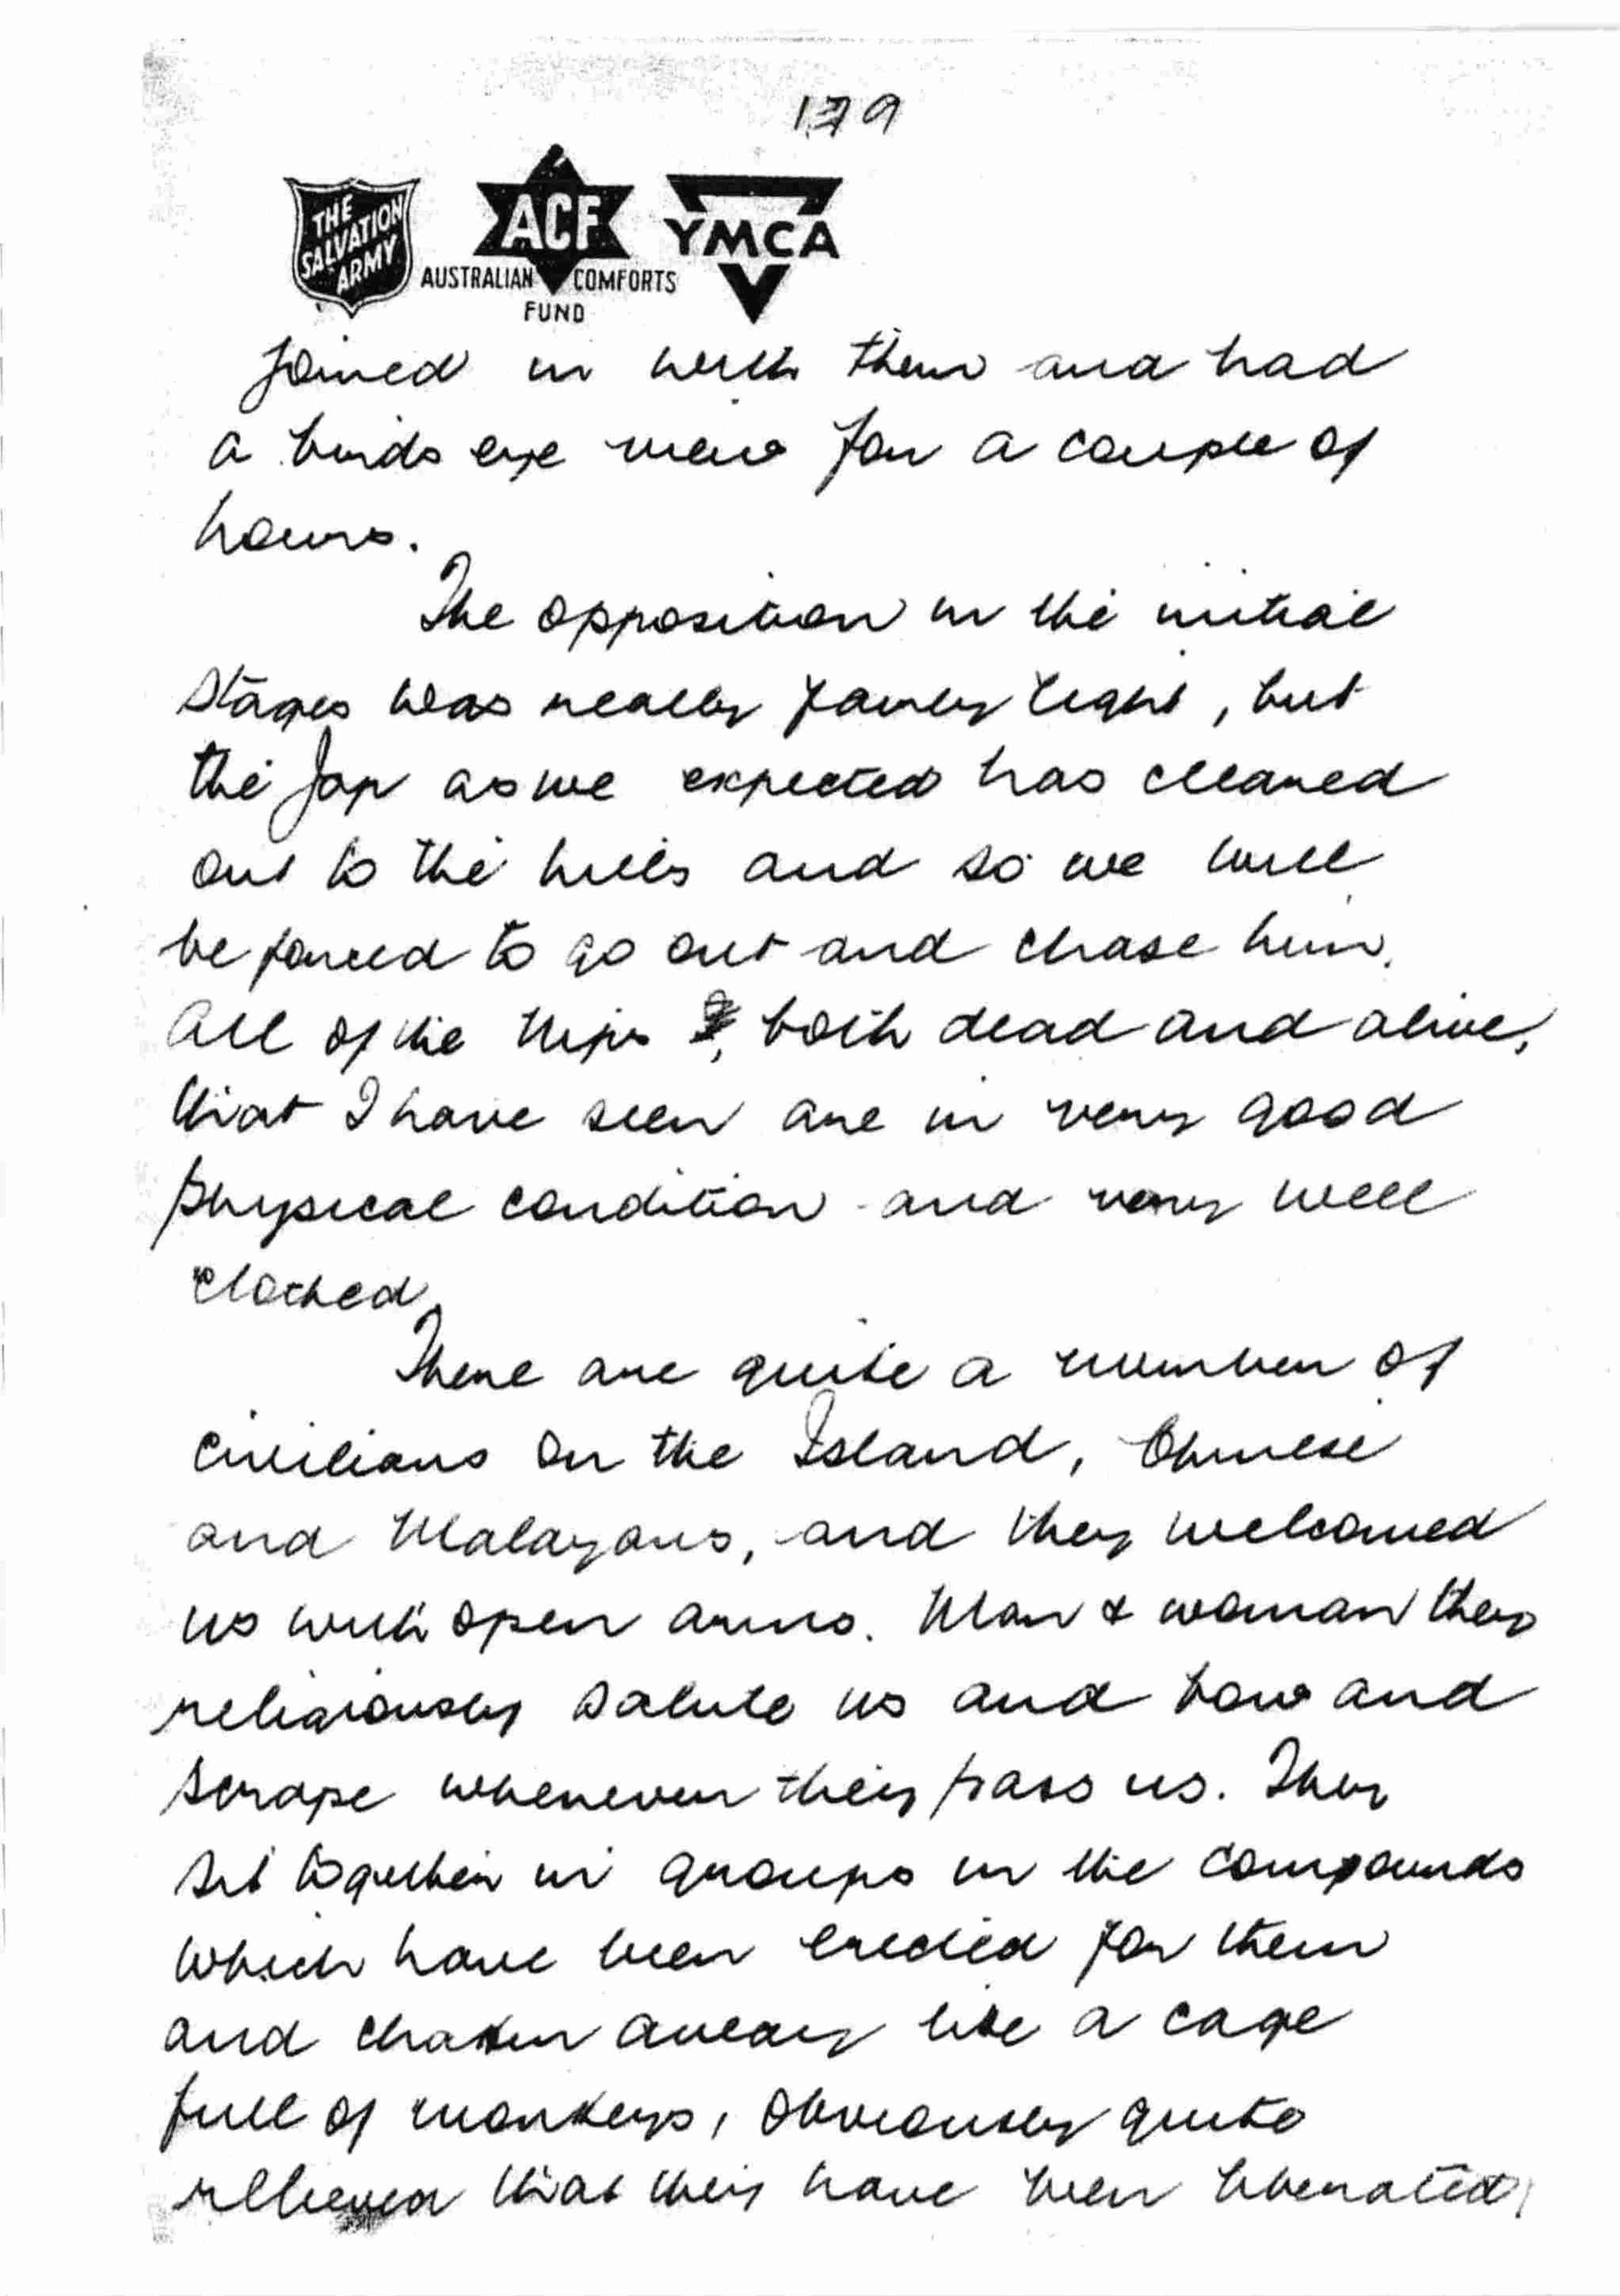 179
THE SALVATION ARMY
ACF
AUSTRALIAN COMFORTS
FUND
YMCA
joined in with them and had
a birds eye view for a couple of
hours.
The opposition in the initial
stages was really fairly light, but
the Jap as we expected has cleared
out to the hills and so we will
be forced to go out and chase him.
All of the Nips, both dead and alive,
that I have seen are in very good
physical condition and very well
clothed.
There are quite a number of
civilians on the Island, Chinese
and Malayans, and they welcomed
us with open arms. Man & woman they
religiously salute us and bow and
scrape whenever they pass us. They
sit together in groups in the compounds
which have been erected for them
and chatter away like a cage
full of monkeys, obviously quite
relieved that they have been liberated,